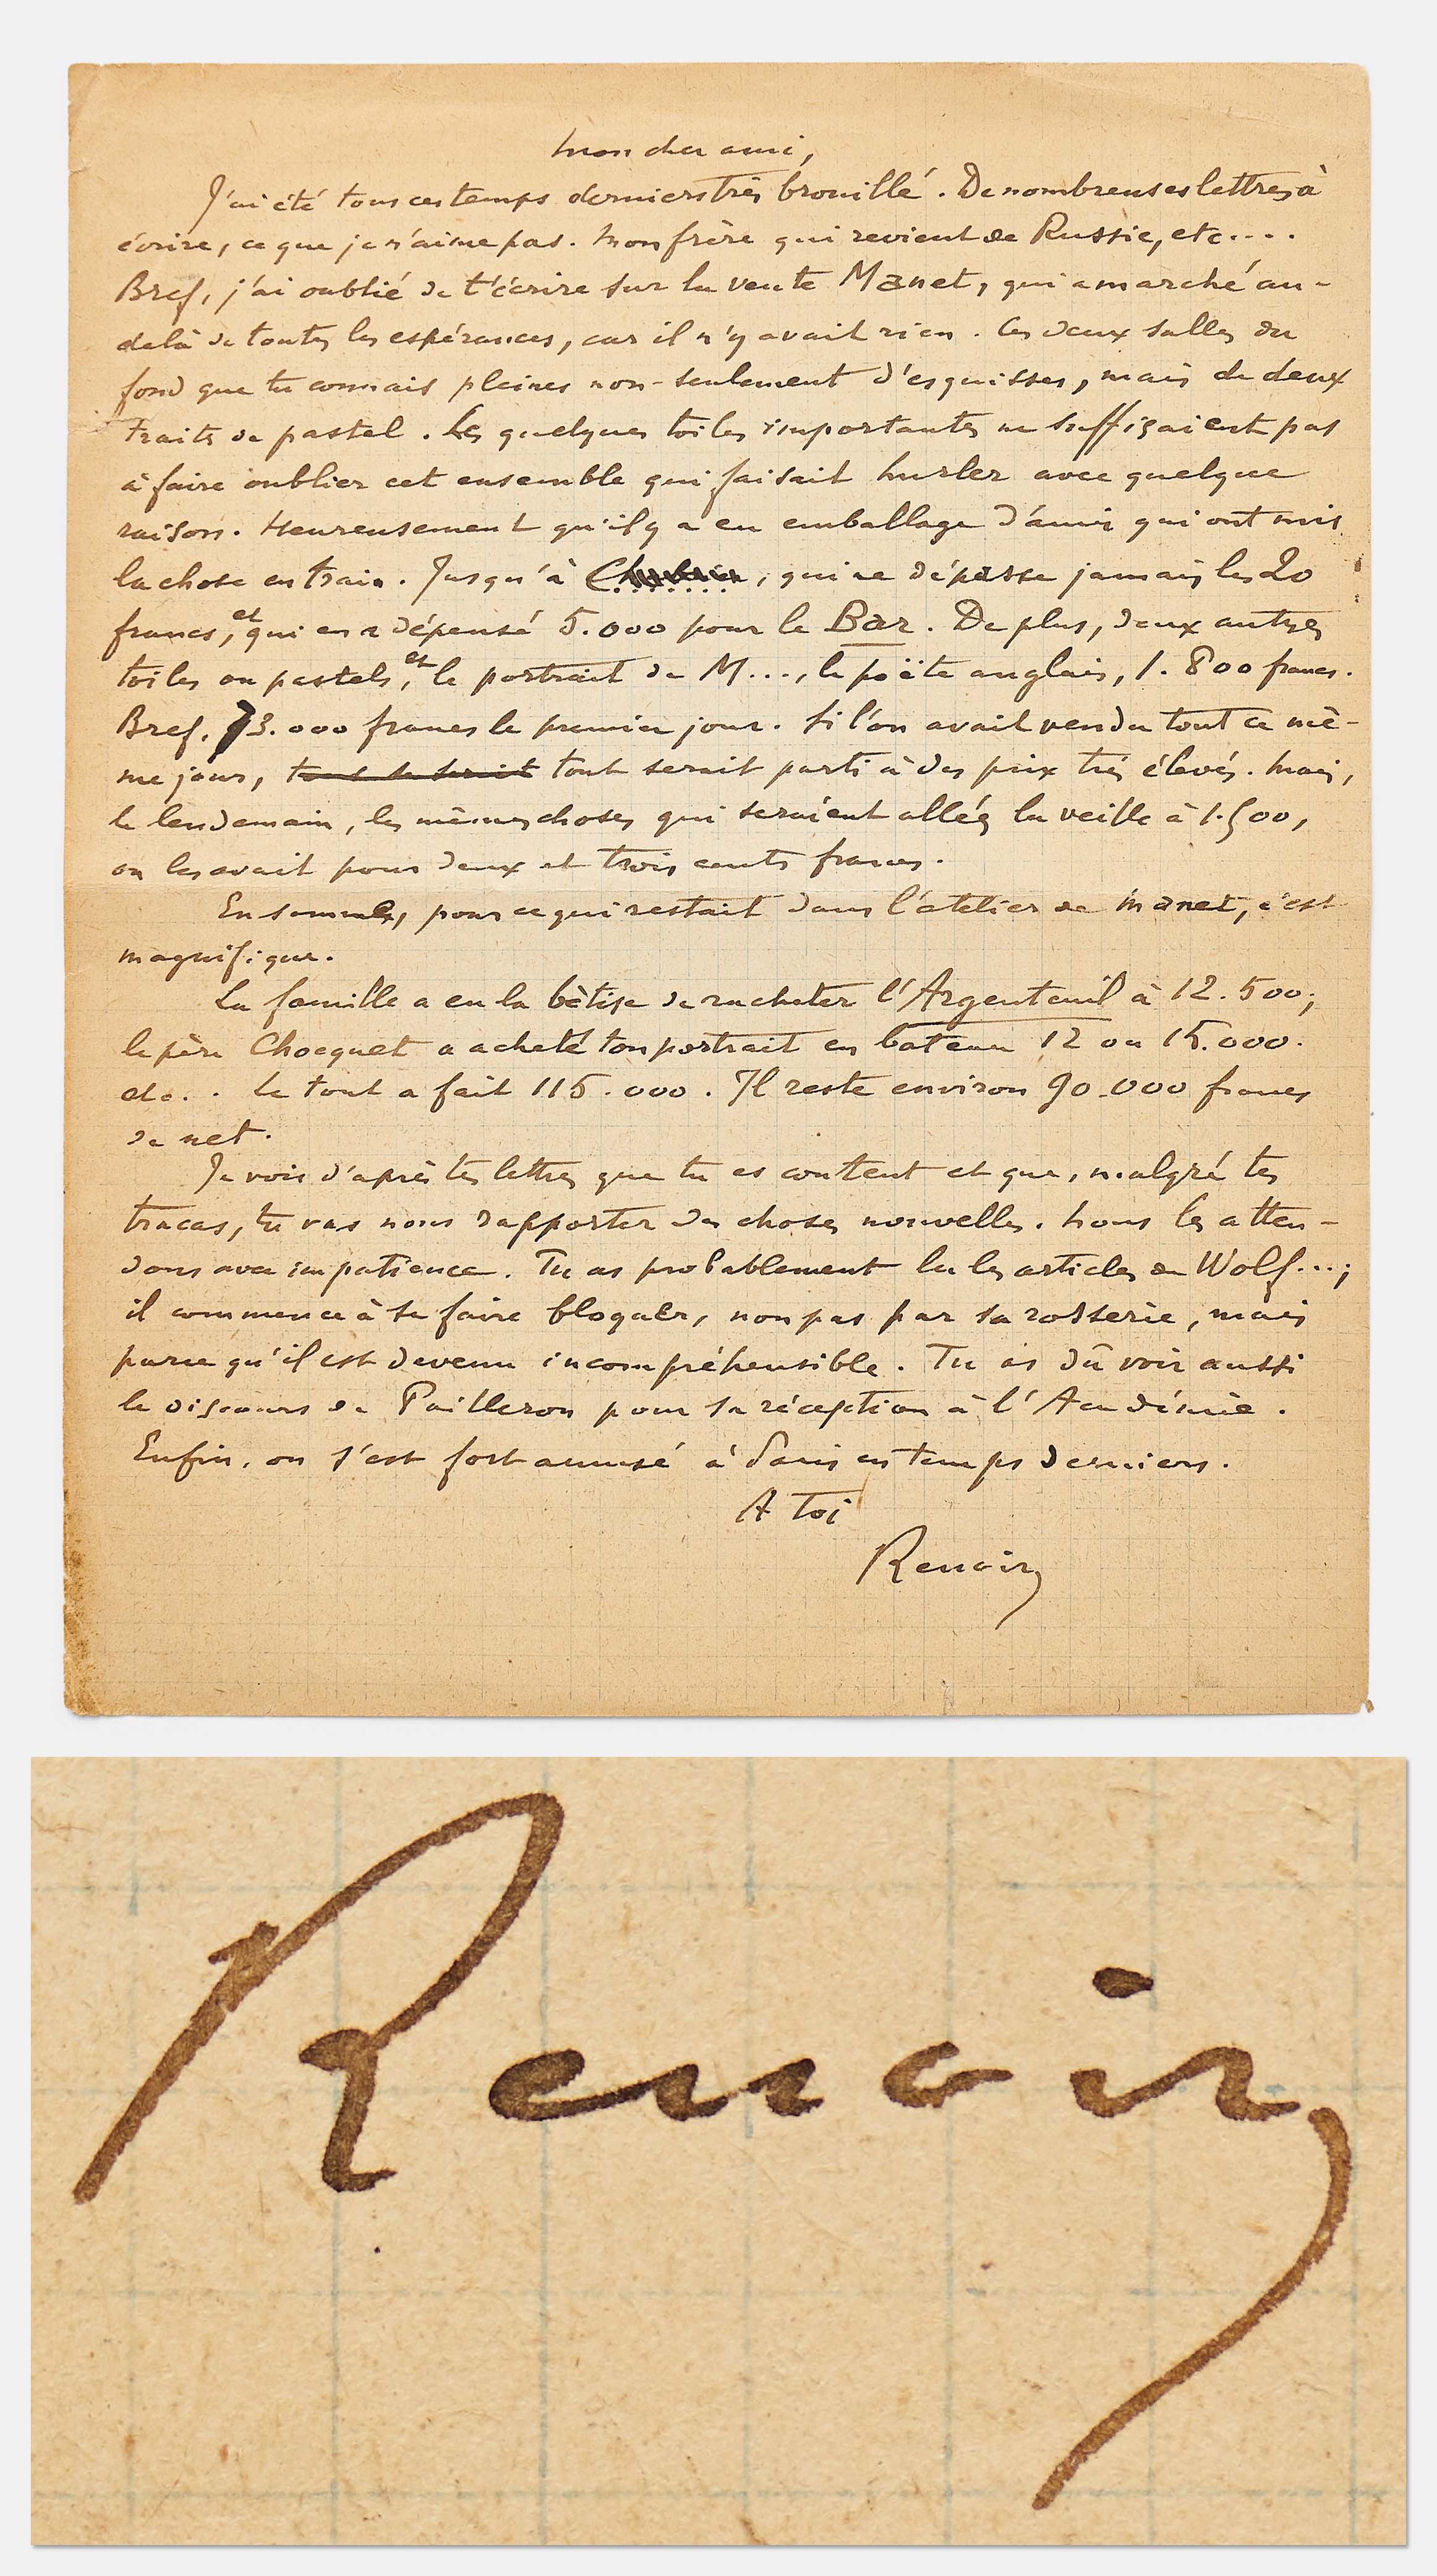 Mon cher ami,
J'ai été tous ces temps derniers très brouillé. De nombreuses lettres à
écrire, ce que je n'aime pas. Mon frère qui revient de Russie, etc....
Bref, j'ai oublié de t'écrire sur la vente Manet, qui a marché au-
delà de toutes les espérances, car il n'y avait rien. Ces deux salles du
fond que tu connais pleines non-seulement d'esquisses, mais de deux
traits de pastel. Les quelques toiles importantes ne suffisaient pas
à faire oublier cet ensemble qui faisait hurler avec quelque
raison. Heureusement qu'il y a eu emballage d'amis qui ont mis
la chose en train. Jusqu'à , qui ne dépasse jamais les 20
francs, et qui en a dépensé 5.000 pour le Bar. De plus, deux autres
toiles ou pastels, et le portrait de M..., le poëte anglais, 1.800 francs.
Bref, 73.000 francs le premier jour. Si l'on avait vendu tout ce mê-
me jour, tout se serait tout serait parti à des prix très élevés. Mais,
le lendemain, les mêmes choses qui seraient allées la veille à 1.500,
on les avait pour deux et trois cents francs.
En somme, pour ce qui restait dans l'atelier de Manet, c'est
magnifique.
La famille a eu la bêtise de racheter l'Argenteuil à 12.500;
le père Chocquet a acheté ton portrait en bateau 12 ou 15.000.
etc.. Le tout a fait 115.000. Il reste environ 90.000 francs
de net.
Je vois d'après tes lettres que tu es content et que, malgré tes
tracas, tu vas nous rapporter des choses nouvelles. Nous les atten-
dons avec impatience. Tu as probablement lu les articles de Wolf...;
il commence à se faire bloquer, non pas par sa rosserie, mais
parce qu'il est devenu incompréhensible. Tu as dû voir aussi
le discours de Pailleron pour sa réception à l'Académie.
Enfin, on s'est fort amusé à Paris ces temps derniers.
A toi
Renoir
Renoir